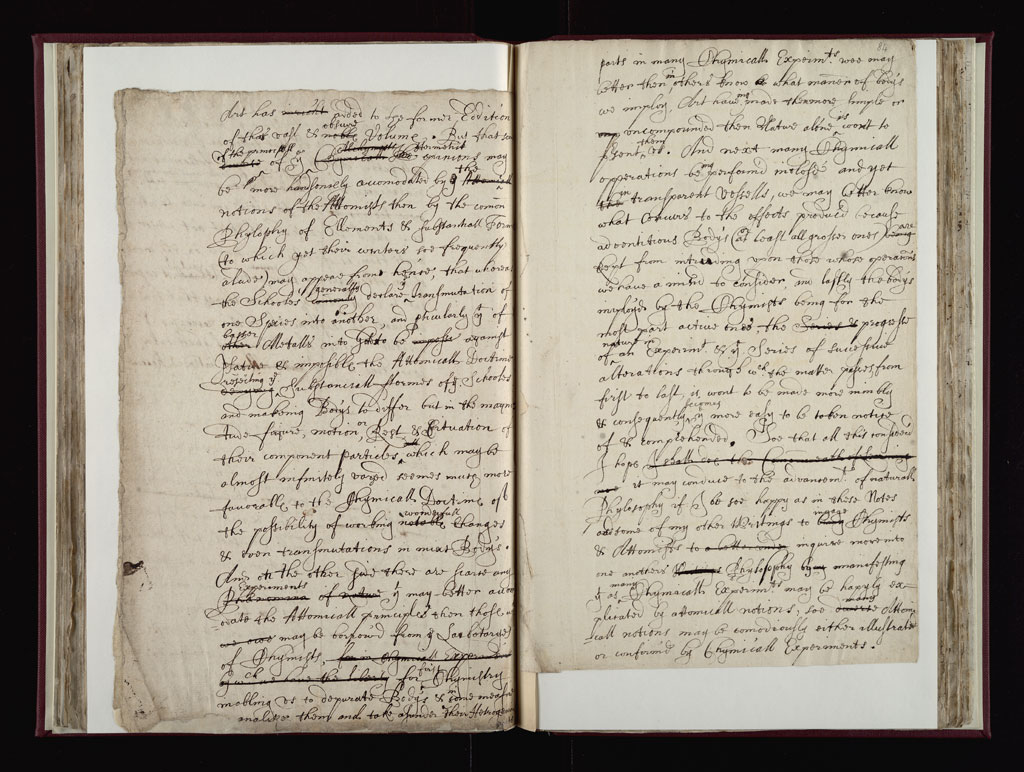 Art has added to the former Edition
of this vast & obscure Volume. But that some
of the principall of ye Hermetick opinions may
be more handsomely accomodated by the
notions of the Atomists then by the comon
Phylosphy of Ellements & substantiall Forms
(to which yet their writers soe frequently
alude) may appeare from hence that whereas
the Schooles generally declare transmutation of
one Species into another, and pticularly yt of
baser Metalls into Gold to be against
Nature & impossible the Atomicall Doctrine
rejecting ye Substanciall formes of ye Schooles
and makeing Bodys to differ but in the magni
tude figure, motion, or Rest & Situation of
their component particles, which may be
almost infinitely varyd seemes much more
favorable to the Chymicall Doctrine of
the possibility of working wonderfull Changes
& even transmutations in mixt Bodys.
And on the other side there are scarce any
Experiments yt may better accomo
date the Atomicall principles then those
may be borrow'd from ye Laboratorys
of Chymists,
for first Chymistry
enabling us to depurate Bodys & in some measure
analize them and take asunder their Hetrogeneous
84
parts in many Chymicall Experimts wee may
better then in others know what maner of bodys
we imploy Art having made them more simple or
uncompounded then Nature alone is wont to
present them us. And next many Chymicall
operations being perform'd in close and yet
transparent Vessells, we may better know
what concurrs to the effects produc'd because
adventitious Bodys (at least all grosser ones) are
kept from intruding upon those whose operations
we have a mind to consider, and lastly the bodys
imployd by the Chymists being for the
most part active ones, the progresse
of nature in an Experimt & ye Series of successive
alterations through wch the matter passes from
first to last, is wont to be made more nimbly
& consequently becomes more easy to be taken notice
of & comprehended. Soe that all this considerd
I hope
it may conduce to the advancemt of naturall
Phylosophy if I be soe happy as in these Notes
and some of my other Writings to ingage Chymists
& Atomists to inquire more into
one anothers Phylosophy by manifesting
yt as many Chymicall Experimts may be happly ex=
plicated by atomicall notions, soe many Atomi
call notions may be comodiously either illustrated
or confirmd by Chymicall Experiments.